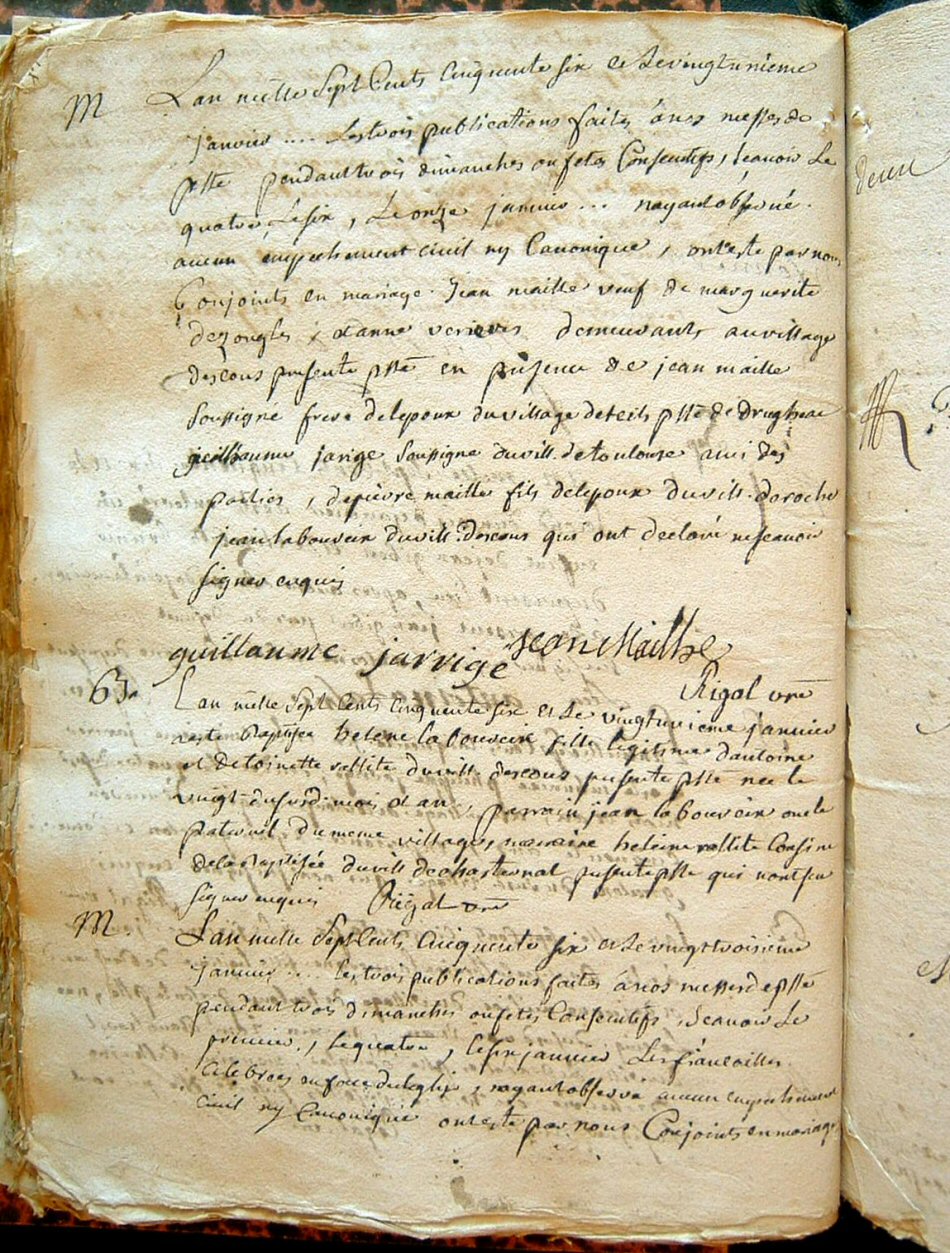 M L'an mille Sept Cents Cinquente six et le vingtunieme
janvier .... les trois publications faites à nos messes de
psse pendant trois dimanches ou fetes Consecutifs, scavoir Le
quatre Le six, Le onze janvier ... nayant observé
aucun empechement civil ny Canonique, ont esté par nous
Conjoints en mariage Jean maille veuf de marguerite
& anne demeurants au village
descous presente psse en presence de jean maille
soussigne frere de lepoux du village de psse de
guilhaume jarrige soussigne du vill. de toulouse ami des
parties, de pierre maille fils de lepoux du vill. de
jean labouveix du vill. descous qui ont declaré ne scavoir
signer enquis
guillaume jarrige Jean Mailhe
Rigal vre
63. L'an mille Sept Cents Cinquente six et Le vingtunieme janvier
a esté Baptisée helene labouveix fille legitime d'antoine
et de toinette vallite du vill. descous presente psse née le
vingt du susdit mois & an, parrain jean labouveix oncle
paternel du meme village, marraine heleine vallite Cousine
de la Baptisée du vill. de chasternat presente psse qui n'ont sçu
signer enquis Rigal vre
M. L'an mille Sept Cents Cinquente six et Le vingt troisieme
janvier .... les trois publications faites à nos messes de psse
pendant trois dimanches ou fetes Consecutifs, scavoir Le
premier, le quatre, le six janvier Les fiançailles
Celebrées en face de leglise, nayant observé aucun empechement
civil ny Canonique ont esté par nous Conjoints en mariage